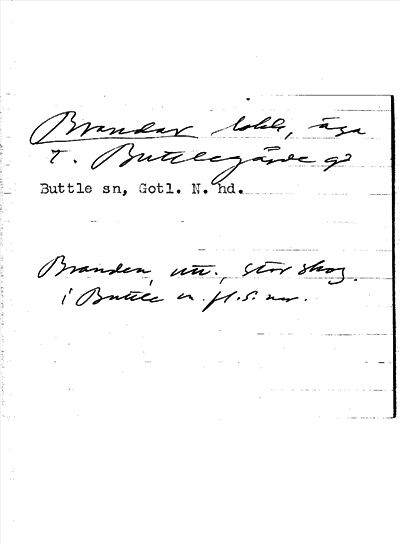 Brandar lokb, äga
T. Buttlegårde gd
Buttle sn, Gotl. N. hd.
Branden, utt., stor skog
i Buttle o. fl. S. nar.